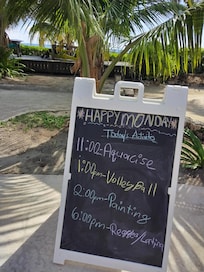 HAPPY MONDAY
Today's Activities
11:00-Aquacise
1:00pm-Volleyball
2:00pm-Painting
6:00pm-